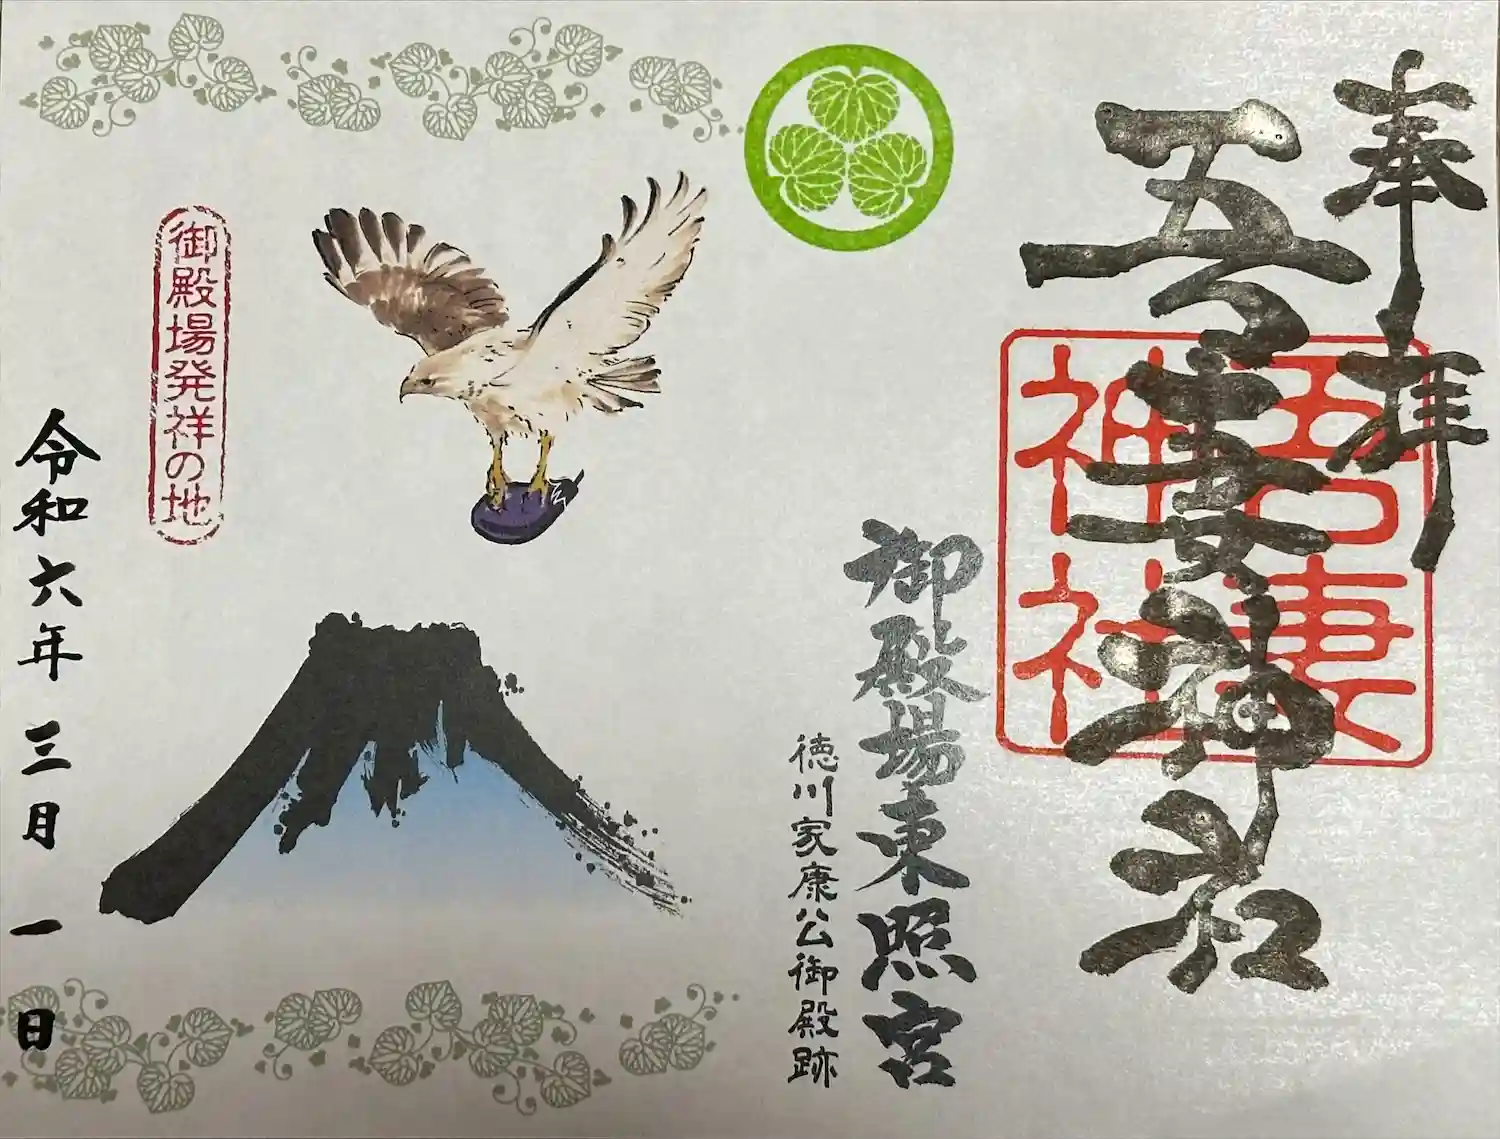 奉拝
吾妻神社
吾妻
神社
御殿場東照宮
徳川家康公御殿跡
御殿場発祥の地
令和六年三月一日